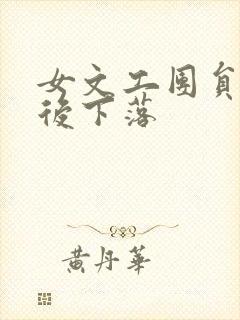 女文工团員
後下落
黄丹華